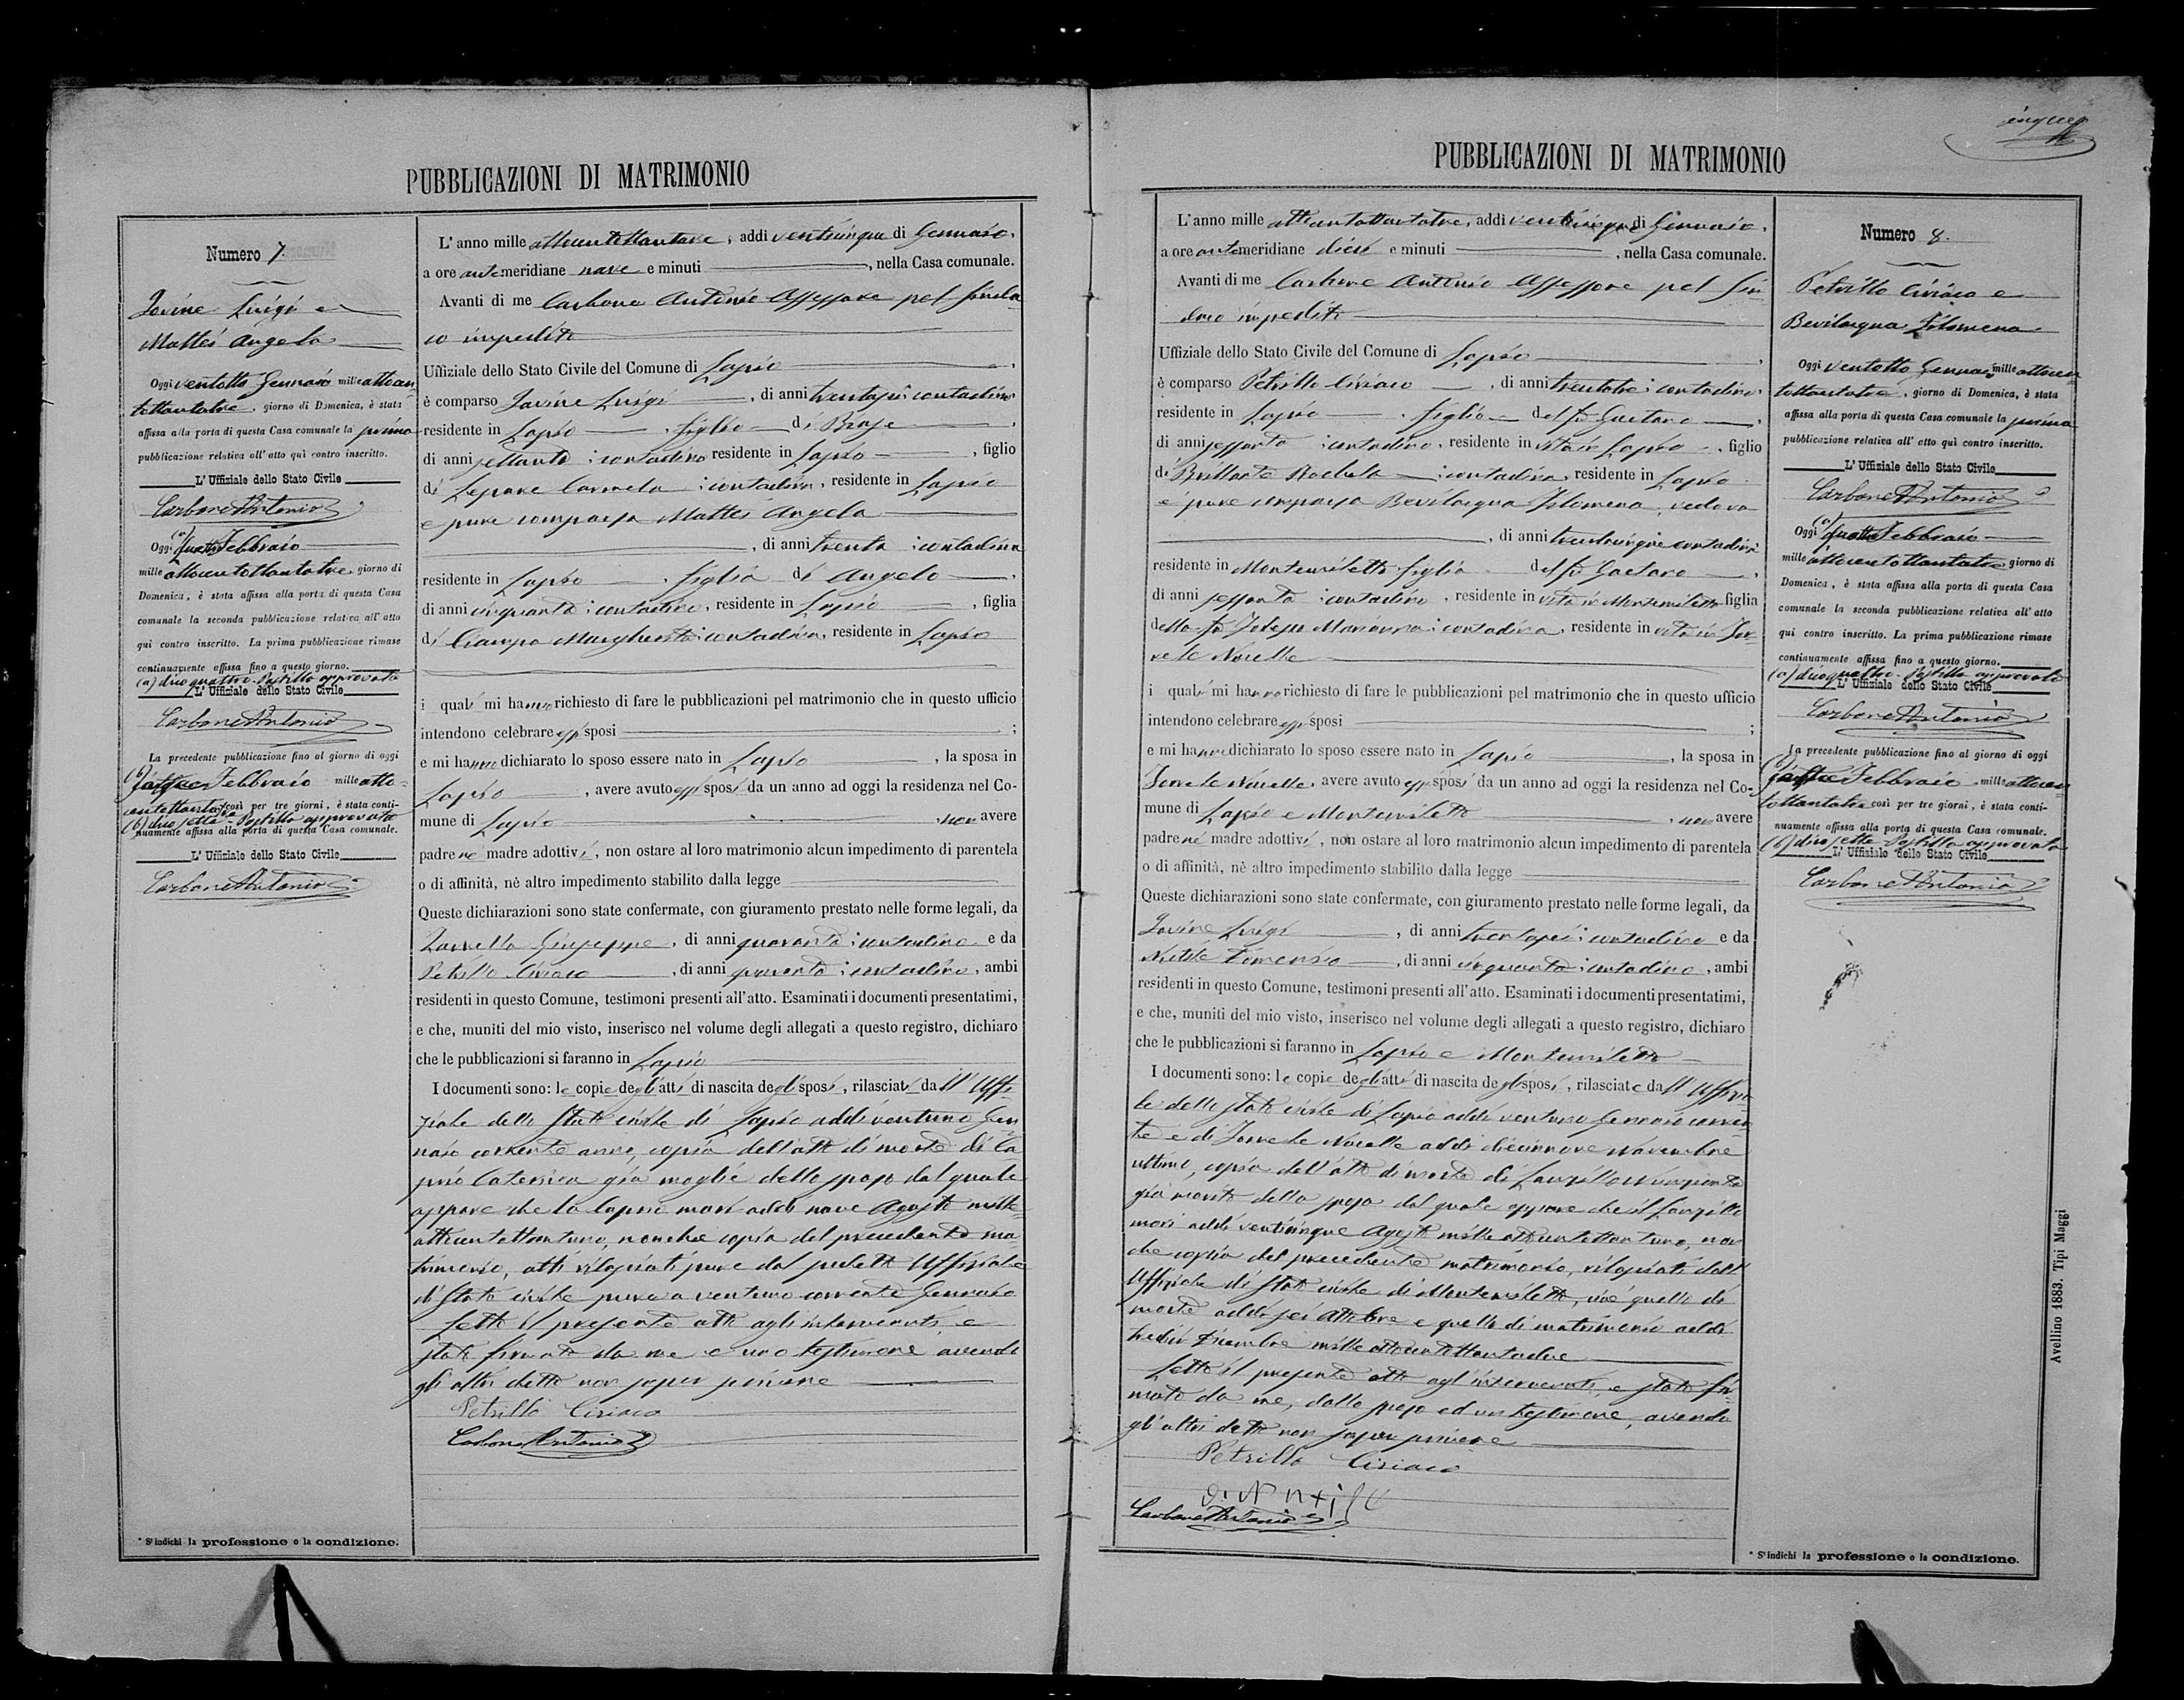 PUBBLICAZIONI DI MATRIMONIO
Numero 7.
Iovine Luigi e
Mattei Angela
Oggi ventotto Gennaio mille ottocen
tottantatre, giorno di Domenica, è stata
affissa alla porta di questa Casa comunale la prima
pubblicazione relativa all' atto quì contro inscritto.
L' Uffiziale dello Stato Civile
Carbone Antonio
Oggi (a) quattro Febbraio
mille ottocentottantatre giorno di
Domenica, è stata affissa alla porta di questa Casa
comunale la seconda pubblicazione relativa all' atto
quì contro inscritto. La prima pubblicazione rimase
continuamente affissa fino a questo giorno.
(a) dico quattro. Postilla approvata
L' Uffiziale dello Stato Civile
Carbone Antonio
La precedente pubblicazione fino al giorno di oggi
(b) sette Febbraio mille otto-
centottantatre così per tre giorni, è stata conti-
(b) dico sette - Postilla approvata
nuamente affissa alla porta di questa Casa comunale.
L' Uffiziale dello Stato Civile
Carbone Antonio
* S' indichi la professione o la condizione.
L' anno mille ottocentottantatre, addì venticinque di Gennaio,
a ore antemeridiane nove e minuti , nella Casa comunale.
Avanti di me Carbone Antonio Assessore pel Sinda
co impedito
Uffiziale dello Stato Civile del Comune di Lapio
è comparso Iovine Luigi , di anni trentasei contadino
residente in Lapio , figlio di Biase
di anni settanta contadino residente in Lapio , figlio
di Lepore Carmela contadina, residente in Lapio
e pure comparsa Mattei Angela
, di anni trenta contadina
residente in Lapio , figlia di Angelo
di anni cinquanta contadino, residente in Lapio , figlia
di Ciampa Margherita contadina, residente in Lapio
i quali mi hanno richiesto di fare le pubblicazioni pel matrimonio che in questo ufficio
intendono celebrare essi sposi ;
e mi hanno dichiarato lo sposo essere nato in Lapio , la sposa in
Lapio , avere avuto essi sposi da un anno ad oggi la residenza nel Co-
mune di Lapio , non avere
padre nè madre adottivi, non ostare al loro matrimonio alcun impedimento di parentela
o di affinità, nè altro impedimento stabilito dalla legge
Queste dichiarazioni sono state confermate, con giuramento prestato nelle forme legali, da
Giuseppe, di anni quaranta contadino e da
Petrillo Ciriaco , di anni quaranta contadino, ambi
residenti in questo Comune, testimoni presenti all' atto. Esaminati i documenti presentatimi,
e che, muniti del mio visto, inserisco nel volume degli allegati a questo registro, dichiaro
che le pubblicazioni si faranno in Lapio
I documenti sono: le copie degli atti di nascita degli sposi, rilasciati dall' Uffi-
ziale dello Stato civile di Lapio addì ventuno Gen
naio corrente anno, copia dell'atto di morte di Ca
prio Caterina già moglie dello sposo dal quale
appare che la Caprio morì addì nove Agosto mille
ottocentottantuno, nonchè copia del precedente ma-
trimonio, atti rilasciati pure dal predetto Uffiziale
di Stato civile pure a ventuno corrente Gennaio
Letto il presente atto agli intervenuti, è
stato firmato da me e uno testimone avendo
gli altri detto non saper scrivere
Petrillo Ciriaco
Carbone Antonio
PUBBLICAZIONI DI MATRIMONIO
L' anno mille ottocentottantatre, addì venticinque di Gennaio,
a ore antemeridiane dieci e minuti , nella Casa comunale.
Avanti di me Carbone Antonio Assessore pel Sin
daco impedito
Uffiziale dello Stato Civile del Comune di Lapio
è comparso Petrillo Ciriaco , di anni trentatre contadino
residente in Lapio , figlio del fu Gaetano
di anni sessanta contadino, residente in vita in Lapio , figlio
di Brillante Rachela contadina, residente in Lapio
e pure comparsa Bevilacqua Filomena, vedova
, di anni trentacinque contadina
residente in Montemiletto figlia del fu Gaetano
di anni sessanta contadino, residente in vita in Montemiletto figlia
della fu Marianna contadina, residente in vita in Tor
re le Nocelle
i quali mi hanno richiesto di fare le pubblicazioni pel matrimonio che in questo ufficio
intendono celebrare essi sposi ;
e mi hanno dichiarato lo sposo essere nato in Lapio , la sposa in
Torre le Nocelle, avere avuto essi sposi da un anno ad oggi la residenza nel Co-
mune di Lapio e Montemiletto , non avere
padre nè madre adottivi, non ostare al loro matrimonio alcun impedimento di parentela
o di affinità, nè altro impedimento stabilito dalla legge
Queste dichiarazioni sono state confermate, con giuramento prestato nelle forme legali, da
Iovine Luigi , di anni trentasei contadino e da
, di anni cinquanta contadino, ambi
residenti in questo Comune, testimoni presenti all' atto. Esaminati i documenti presentatimi,
e che, muniti del mio visto, inserisco nel volume degli allegati a questo registro, dichiaro
che le pubblicazioni si faranno in Lapio e Montemiletto
I documenti sono: le copie degli atti di nascita degli sposi, rilasciate dall' Uffizia
le dello Stato civile di Lapio addì ventuno Gennaio corren
te e di Torre le Nocelle addì diecinnove Novembre
ultimo, copia dell'atto di morte di
già marito della sposa dal quale appare che il
morì addì venticinque Agosto mille ottocentottantuno, non
che copia del precedente matrimonio, rilasciati dall'
Uffiziale di Stato civile di Montemiletto, cioè quello di
morte addì sei Ottobre e quello di matrimonio addì
tredici Dicembre mille ottocentottantadue
Letto il presente atto agl' intervenuti, è stato fir-
mato da me, dallo sposo ed un testimone, avendo
gli altri detto non saper scrivere
Petrillo Ciriaco
Carbone Antonio
Numero 8.
Petrillo Ciriaco e
Bevilacqua Filomena
Oggi ventotto Gennaio mille ottocen
tottantatre, giorno di Domenica, è stata
affissa alla porta di questa Casa comunale la prima
pubblicazione relativa all' atto quì contro inscritto.
L' Uffiziale dello Stato Civile
Carbone Antonio
Oggi (a) quattro Febbraio
mille ottocentottantatre giorno di
Domenica, è stata affissa alla porta di questa Casa
comunale la seconda pubblicazione relativa all' atto
quì contro inscritto. La prima pubblicazione rimase
continuamente affissa fino a questo giorno.
(a) dico quattro - Postilla approvata
L' Uffiziale dello Stato Civile
Carbone Antonio
La precedente pubblicazione fino al giorno di oggi
(b) sette Febbraio mille ottocen-
tottantatre così per tre giorni, è stata conti-
nuamente affissa alla porta di questa Casa comunale.
(b) dico sette - Postilla approvata
L' Uffiziale dello Stato Civile
Carbone Antonio
Avellino 1883. Tipi Maggi
* S' indichi la professione o la condizione.